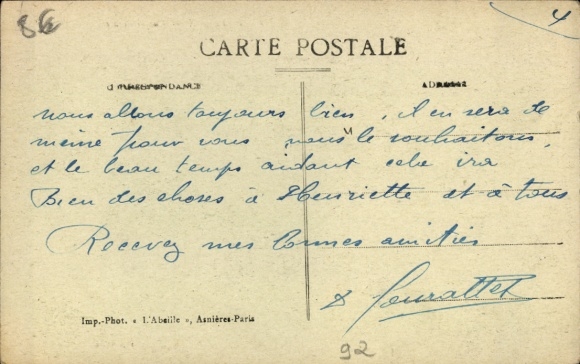 86
4
CARTE POSTALE
CORRESPONDANCE
ADRESSE
nous allons toujours bien, il en sera de
meme pour vous nous le souhaitons,
et le beau temps aidant cela ira
Bien des choses à Henriette et à tous
Recevez mes bonnes amitiés
Imp.-Phot. « L'Abeille », Asnières-Paris
92